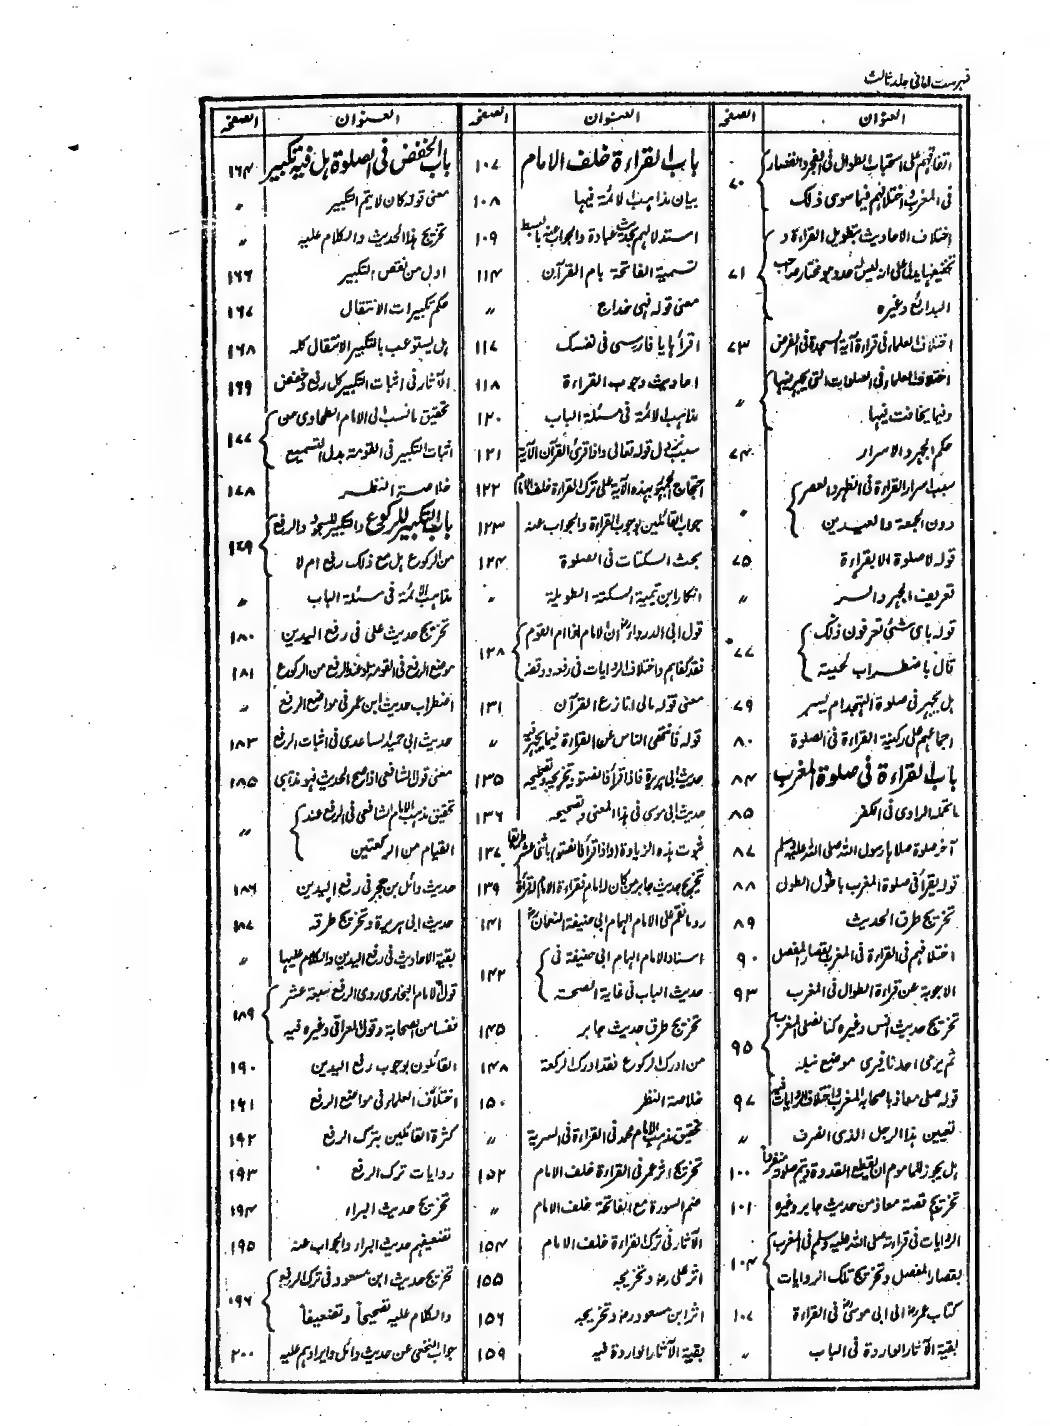 فہرست امانی جلد ثالث
العنوان الصفحہ
اتفاقہم على استحباب الطوال فى الفجر والقصار
فى المغرب واختلافہم فيما سوى ذلک ۷۰
اختلاف الاحاديث بتطويل القراءة و
تخفيفہا يدل على انہ ليس لہ حد وہو مختار صاحب ۷۱
البدائع وغيرہ
اختلاف العلماء فى قراءة آية السجدة فى الفرض ۷۳
اختلاف العلماء فى الصلوات التى يجہر فيہا
وفيما يخافت فيہا ״
حکم الجہر والاسرار ۷۴
سبب اسرار القراءة فى الظہر والعصر
دون الجمعة والعيدين
قولہ لا صلوة الا بقراءة ۷۵
تعريف الجہر والسر ״
قولہ بأى شئ تعرفون ذلک
قال باضطراب لحيتہ ۷۷
ہل يجہر فى صلوة التہجد ام يسر ۷۹
اجماعہم على رکنية القراءة فى الصلوة ۸۰
باب القراءة فى صلوة المغرب ۸۴
ما تحملہ الراوى فى الکفر ۸۵
آخر صلوة صلاہا رسول اللہ صلى اللہ عليہ وسلم ۸۷
قولہ يقرأ فى صلوة المغرب باطول الطول ۸۸
تخريج طرق الحديث ۸۹
اختلافہم فى القراءة فى المغرب بقصار المفصل ۹۰
الاجوبة عن قراءة الطوال فى المغرب ۹۳
تخريج حديث انس وغيرہ کنا نصلى المغرب
ثم يرمى احدنا فيرى موضع نبلہ ۹۵
قولہ صلى معاذ باصحابہ المغرب واختلاف الروايات فيہ ۹۷
تعيين ہذا الرجل الذى انصرف ״
ہل يجوز للماموم ان يقطع القدوة ويتم صلوتہ منفردا ۱۰۰
تخريج قصة معاذ من حديث جابر وغيرہ ۱۰۱
الروايات فى قراءتہ صلى اللہ عليہ وسلم فى المغرب
بقصار المفصل وتخريج تلک الروايات ۱۰۴
کتاب عمرؓ الى ابى موسىؓ فى القراءة ۱۰۷
بقية الآثار الواردة فى الباب ״
العنوان الصفحہ
باب القراءة خلف الامام ۱۰۷
بيان مذاہب الائمة فيہا ۱۰۸
استدلالہم بحديث عبادة والجواب عنہ بالبسط ۱۰۹
تسمية الفاتحة بام القرآن ۱۱۴
معنى قولہ فہى خداج ״
اقرأ بہا يا فارسى فى نفسک ۱۱۷
احاديث وجوب القراءة ۱۱۸
مذاہب الائمة فى مسئلة الباب ۱۲۰
سبب نزول قولہ تعالى واذا قرئ القرآن الآية ۱۲۱
احتجاج الجمہور بہذہ الآية على ترک القراءة خلف الامام ۱۲۲
جواب القائلين بوجوب القراءة والجواب عنہ ۱۲۳
بحث السکتات فى الصلوة ۱۲۴
انکار ابن تيمية السکتة الطويلة ״
قول ابى الدرداءؓ ان الامام اذا ام القوم
فقد کفاہم واختلاف الروايات فى رفعہ ووقفہ ۱۲۸
معنى قولہ مالى انازع القرآن ۱۳۱
قولہ فانتہى الناس عن القراءة فيما يجہر فيہ ״
حديث ابى ہريرة فاذا قرأ فانصتوا وتخريجہ وتصحيحہ ۱۳۵
حديث ابى موسى فى ہذا المعنى وتصحيحہ ۱۳۶
ثبوت ہذہ الزيادة (واذا قرأ فانصتوا) باثنى عشر طريقا ۱۳۷
تخريج حديث جابر من کان لہ امام فقراءة الامام لہ قراءة ۱۳۹
رد ما نقم على الامام الہمام ابى حنيفة النعمان ۱۴۱
اسناد الامام الہمام ابى حنيفة فى
حديث الباب فى غاية الصحة ۱۴۲
تخريج طرق حديث جابر ۱۴۵
من ادرک الرکوع فقد ادرک الرکعة ۱۴۸
خلاصة النظر ۱۵۰
تحقيق مذہب الامام محمد فى القراءة فى السرية ״
تخريج اثر عمر فى القراءة خلف الامام ۱۵۲
ضم السورة مع الفاتحة خلف الامام ״
الآثار فى ترک القراءة خلف الامام ۱۵۴
اثر علىؓ وتخريجہ ۱۵۵
اثر ابن مسعودؓ وتخريجہ ۱۵۶
بقية الآثار الواردة فيہ ۱۵۹
العنوان الصفحہ
باب الخفض فى الصلوة ہل فيہ تکبير ۱۶۴
معنى قولہ کان لا يتم التکبير ״
تخريج ہذا الحديث والکلام عليہ ״
اول من نقص التکبير ۱۶۶
حکم تکبيرات الانتقال ۱۶۷
ہل يستوعب بالتکبير الانتقال کلہ ۱۶۸
الآثار فى اثبات التکبير کل رفع وخفض ۱۶۹
تحقيق ما نسب الى الامام الطحاوى من
اثبات التکبير فى القومة بدل التسميع ۱۷۷
خلاصة النظر ۱۷۸
باب التکبير للرکوع والتکبير للسجود والرفع
من الرکوع ہل مع ذلک رفع ام لا ۱۷۹
مذاہب الائمة فى مسئلة الباب ״
تخريج حديث على فى رفع اليدين ۱۸۰
موضع الرفع فى القومة ہل ہو عند الرفع من الرکوع ۱۸۱
اضطراب حديث ابن عمر فى مواضع الرفع ״
حديث ابى حميد الساعدى فى اثبات الرفع ۱۸۳
معنى قول الشافعى اذا صح الحديث فہو مذہبى ۱۸۵
تحقيق مذہب الامام الشافعى فى الرفع عند
القيام من الرکعتين ״
حديث وائل بن حجر فى رفع اليدين ۱۸۶
حديث ابى ہريرة وتخريج طرقہ ۱۸۷
بقية الاحاديث فى رفع اليدين والکلام عليہا ״
قول الامام البخارى روى الرفع سبعة عشر
نفسا من الصحابة وقول العراقى وغيرہ فيہ ۱۸۹
القائلون بوجوب رفع اليدين ۱۹۰
اختلاف العلماء فى مواضع الرفع ۱۹۱
کثرة القائلين بترک الرفع ۱۹۲
روايات ترک الرفع ۱۹۳
تخريج حديث البراء ۱۹۴
تضعيفہم حديث البراء والجواب عنہ ۱۹۵
تخريج حديث ابن مسعود فى ترک الرفع
والکلام عليہ تصحيحاً وتضعيفاً ۱۹۶
جواب النخعى عن حديث وائل وايرادہم عليہ ۲۰۰